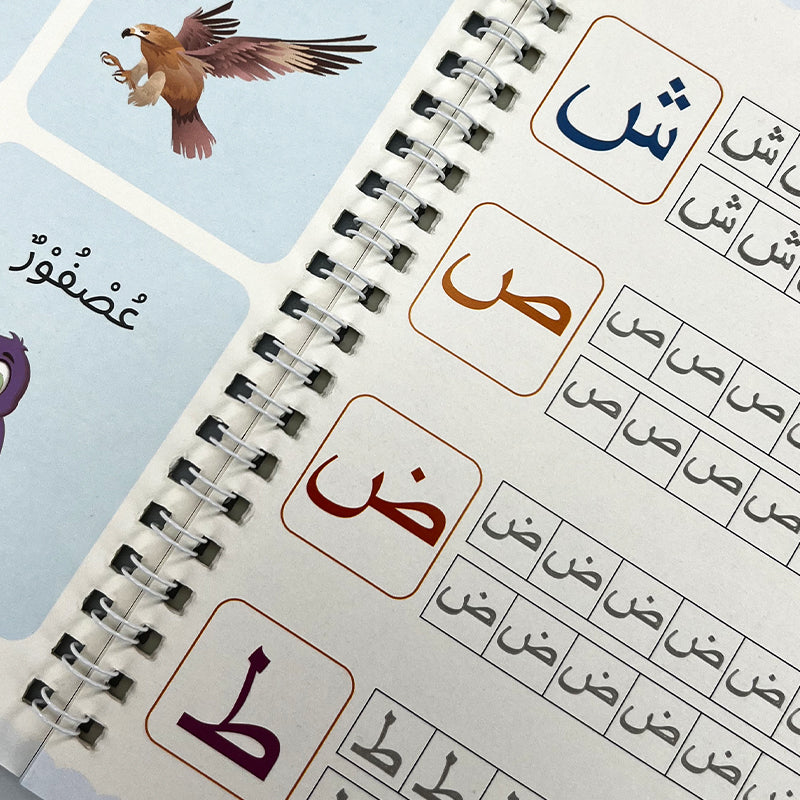 عُصْفُوْرٌ
ش
ش
ش ش
ص
ص ص ص
ص ص ص ص
ض
ض ض ض ض ض
ض ض ض ض ض
ط
ط ط